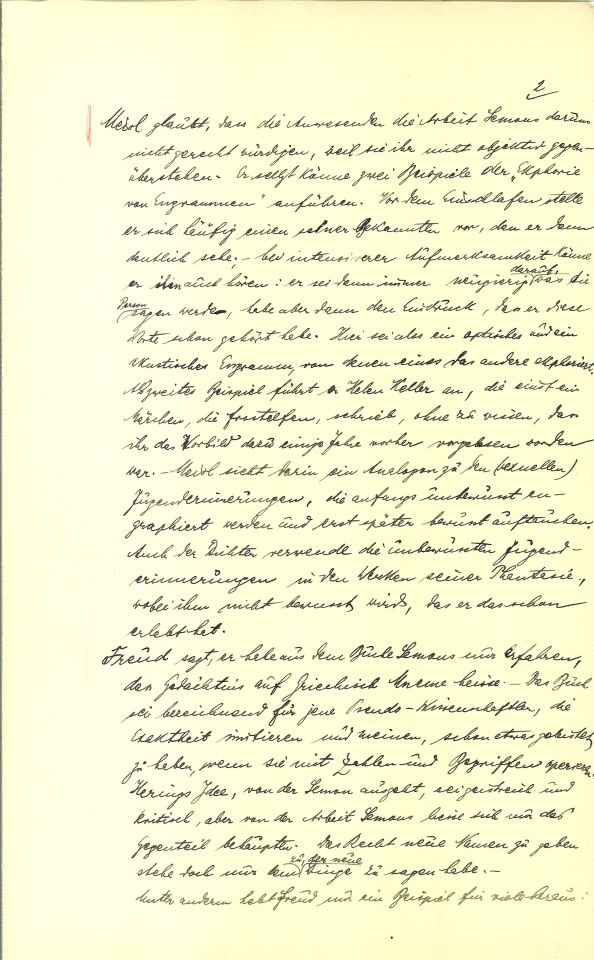 2
Meisl glaubt, dass die Anwesenden die Arbeit Semons darum
nicht gerecht würdigen, weil sie ihr nicht objektiv gegen-
überstehen. Er selbst könne zwei Beispiele der „Ekphorie
von Engrammen" anführen. Vor dem Einschlafen stelle
er sich häufig einen seiner Bekannten vor, den er dann
deutlich sehe; – bei intensiverer Aufmerksamkeit könne
er ihn auch hören: er sei dann immer neugierig darauf, was die
Person sagen werde, habe aber dann den Eindruck, dass er diese
Worte schon gehört habe. Hier sei also ein optisches und ein
akustisches Engramm, von denen eines das andere ekphoriert.
Als zweites Beispiel führt er Helen Keller an, die einst ein
Märchen, die Frostelfen, schrieb, ohne zu wissen, dass
ihr das Vorbild dazu einige Jahre vorher vorgelesen worden
war. – Meisl sieht darin ein Analogon zu den (sexuellen)
Jugenderinnerungen, die anfangs unbewusst en-
graphiert werden und erst später bewusst auftauchen.
Auch der Dichter verwende die unbewussten Jugend-
erinnerungen in den Werken seiner Phantasie,
wobei ihm nicht bewusst wird, dass er das schon
erlebt hat.
Freud sagt, er habe aus dem Buche Semons nur erfahren,
dass Gedächtnis auf Griechisch Mneme heisse. – Das Buch
sei bezeichnend für jene Pseudo-Wissenschaftler, die
Exaktheit imitieren und meinen, schon etwas geleistet
zu haben, wenn sie mit Zahlen und Begriffen operieren.
Herings Idee, von der Semon ausgeht, sei geistreich und
kritisch, aber von der Arbeit Semons liesse sich nur das
Gegenteil behaupten. Das Recht neue Namen zu geben
stehe doch nur dem zu, der neue Dinge zu sagen habe. –
Unter anderm hebt Freud nur ein Beispiel für viele heraus: